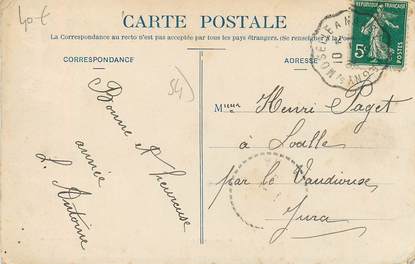 40 €
CARTE POSTALE
La Correspondance au recto n'est pas acceptée par tous les pays étrangers. (Se renseigner à la Poste)
CORRESPONDANCE
ADRESSE
54
Bonne & heureuse
année
L. Antoine
Mme Henri Paget
à Loulle
par le Vaudioux
Jura
REPUBLIQUE FRANÇAISE
5c
POSTES
10